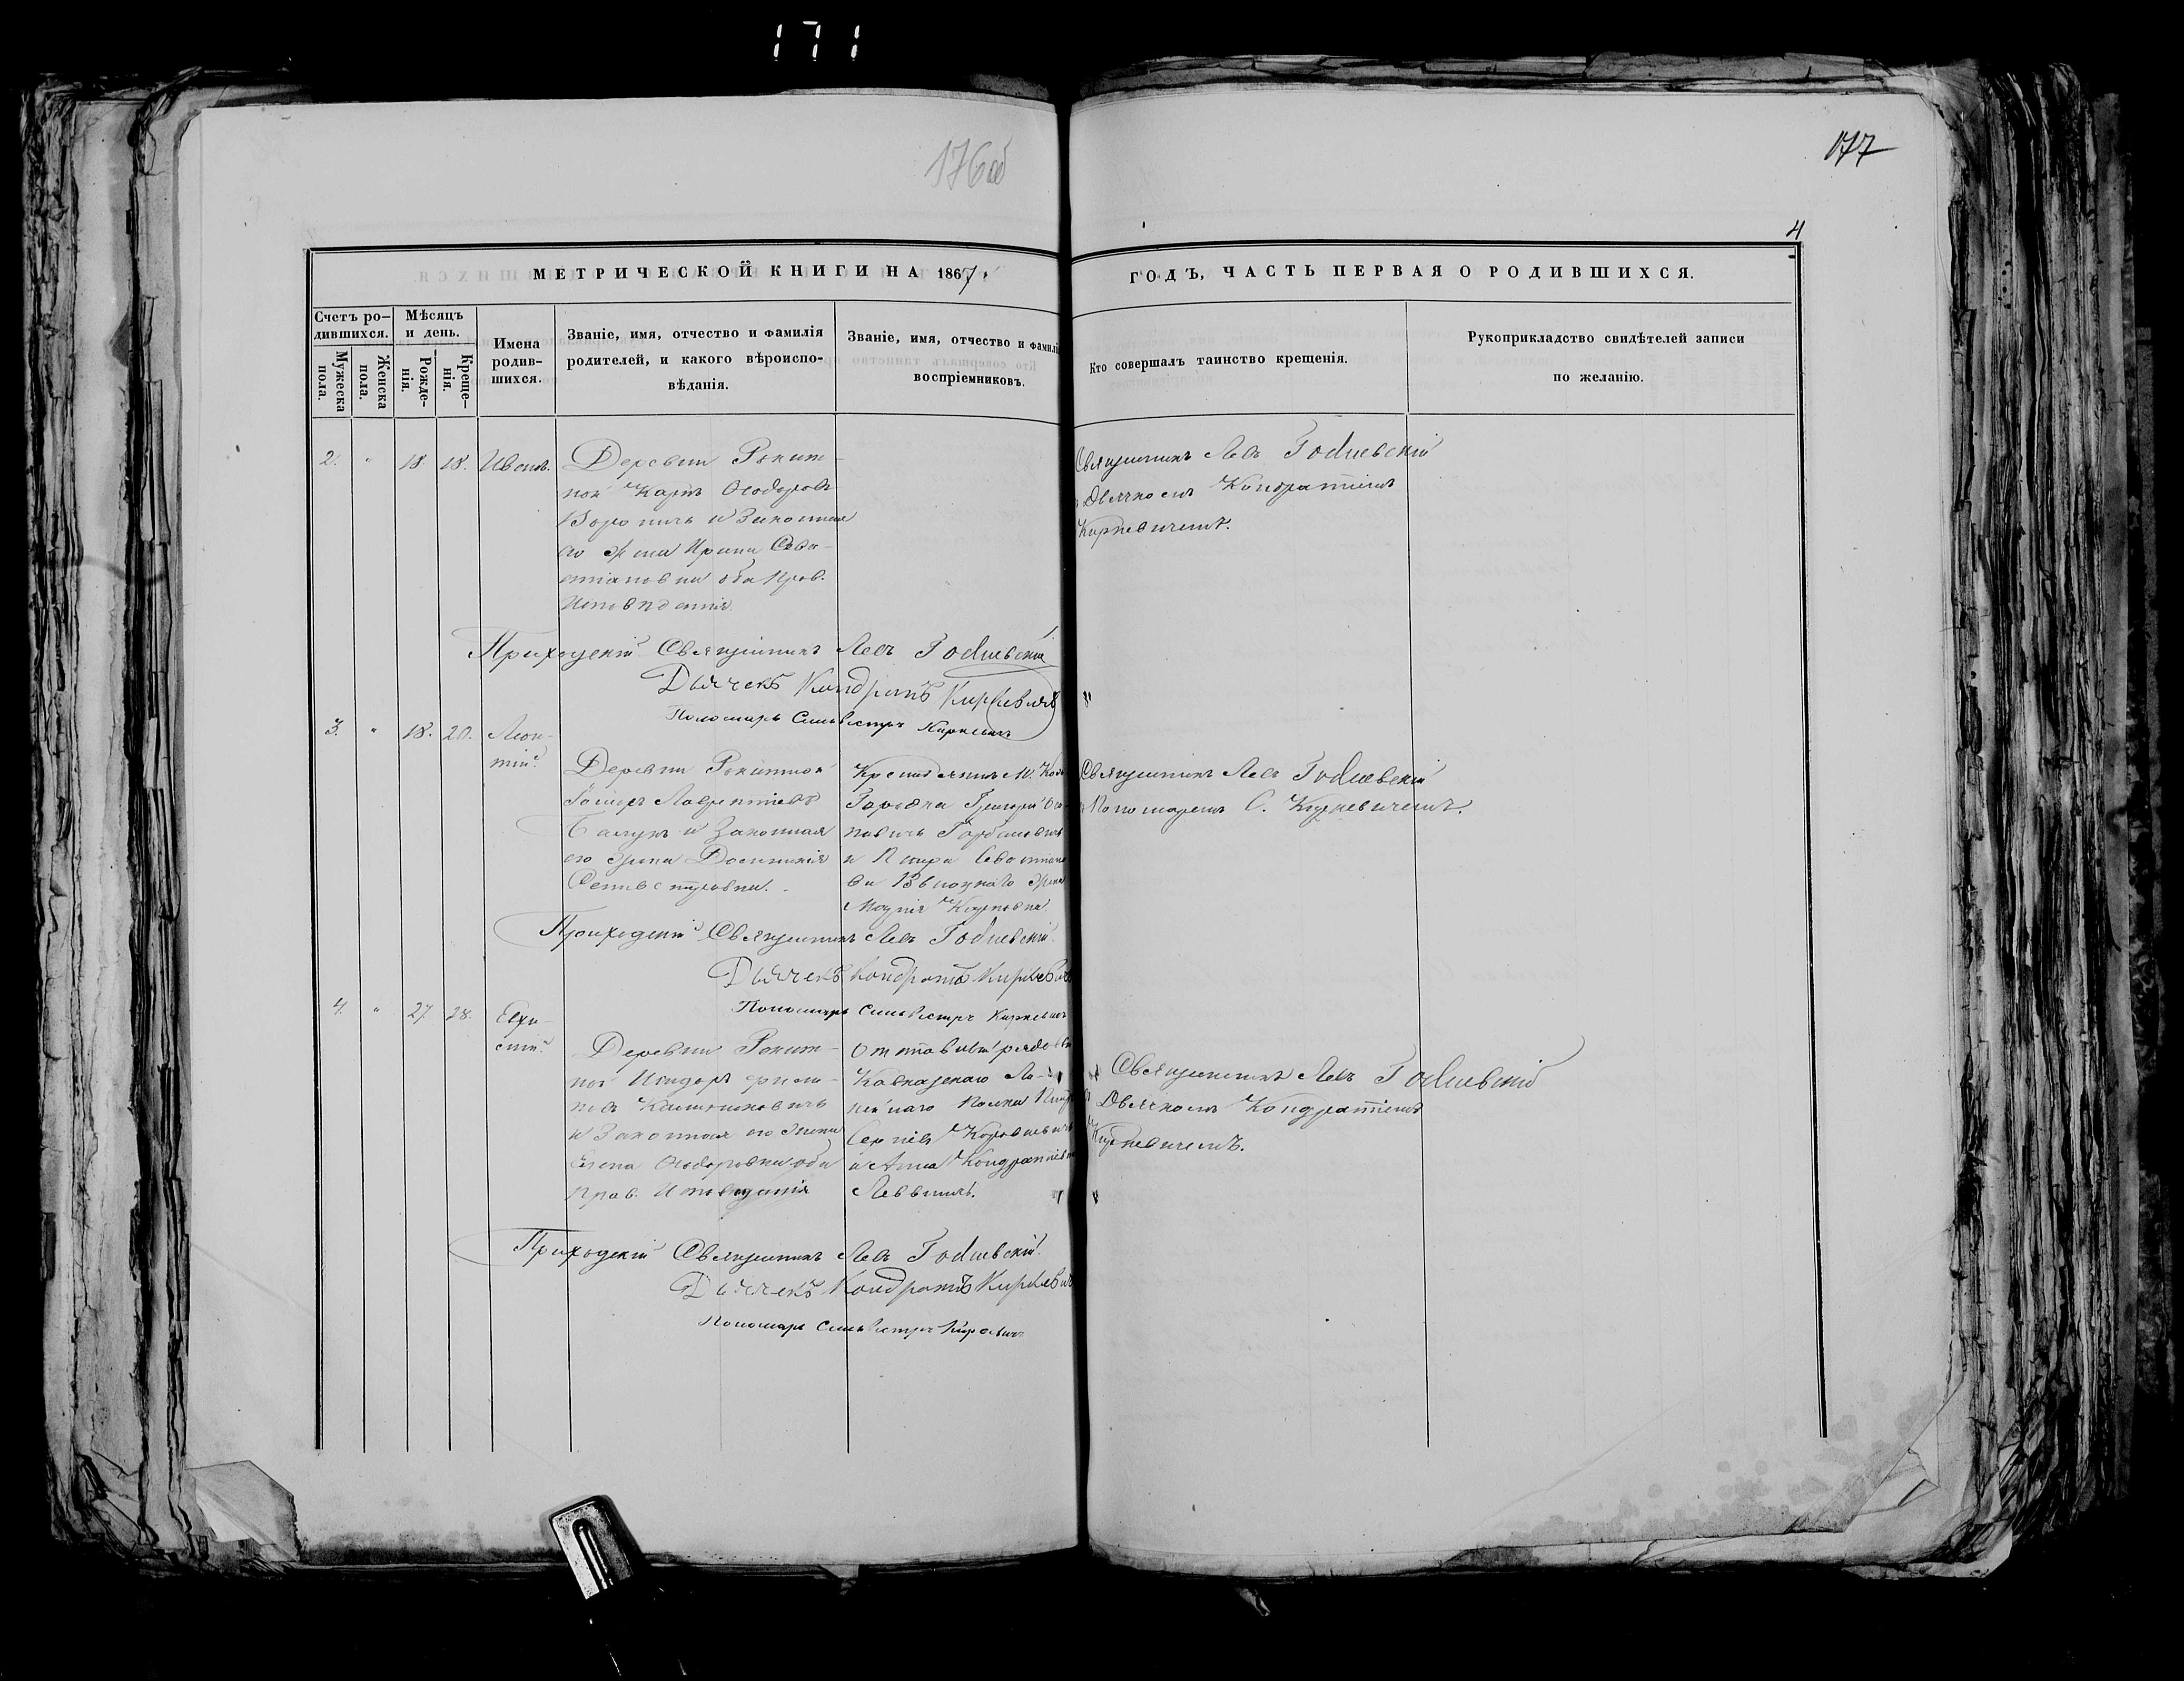 171
176об
177
4
МЕТРИЧЕСКОЙ КНИГИ НА 1867
ГОДЪ, ЧАСТЬ ПЕРВАЯ О РОДИВШИХСЯ.
Счетъ ро-
дившихся.
Мужеска
пола.
Женска
пола.
Мѣсяцъ
и день.
Рожде-
нія.
Креще-
нія.
Имена
родив-
шихся.
Званіе, имя, отчество и фамилія
родителей, и какого вѣроиспо-
вѣданія.
Званіе, имя, отчество и фамилі
воспріемниковъ.
Кто совершалъ таинство крещенія.
Рукоприкладство свидѣтелей записи
по желанію.
2. " 18. 18. Иванъ.
Деревни Рокит-
ной Карпъ Ѳеодоровъ
и Законная
его жена Ирина Сева-
стіановна оба Прав.
Исповѣданія.
Священникъ Левъ Годлевскій
Дьячкомъ Кондратіемъ
Киркевичемъ.
Приходскій Священникъ Левъ Годлевскій
Дьячекъ Кондратъ Киркевичъ
Пономарь Сильвестръ Киркевичъ
3. " 18. 20. Леон-
тій.
Деревни Рокитной
Лаврентіевъ
и Законная
его жена Домникія
Сильвестровна.
Крестьянинъ М.
Григорій
и
жена
Марія Карповна
Священникъ Левъ Годлевскій
Пономаремъ С. Киркевичемъ.
Приходскій Священникъ Левъ Годлевскій.
Дьячекъ Кондратъ Киркевичъ
Пономарь Сильвестръ Киркевичъ
4. " 27. 28. Евфи-
мій.
Деревни Рокит-
ной Исидоръ
и Законная его жена
Елена Ѳеодоровна оба
Прав. Исповѣданія
Отставный рядовый
Кавказскаго Ли-
нейнаго
Сергіевъ
и Анна Кондратіевна
Священникъ Левъ Годлевскій
Дьячкомъ Кондратіемъ
Киркевичемъ.
Приходскій Священникъ Левъ Годлевскій.
Дьячекъ Кондратъ Киркевичъ
Пономарь Сильвестръ Киркевичъ